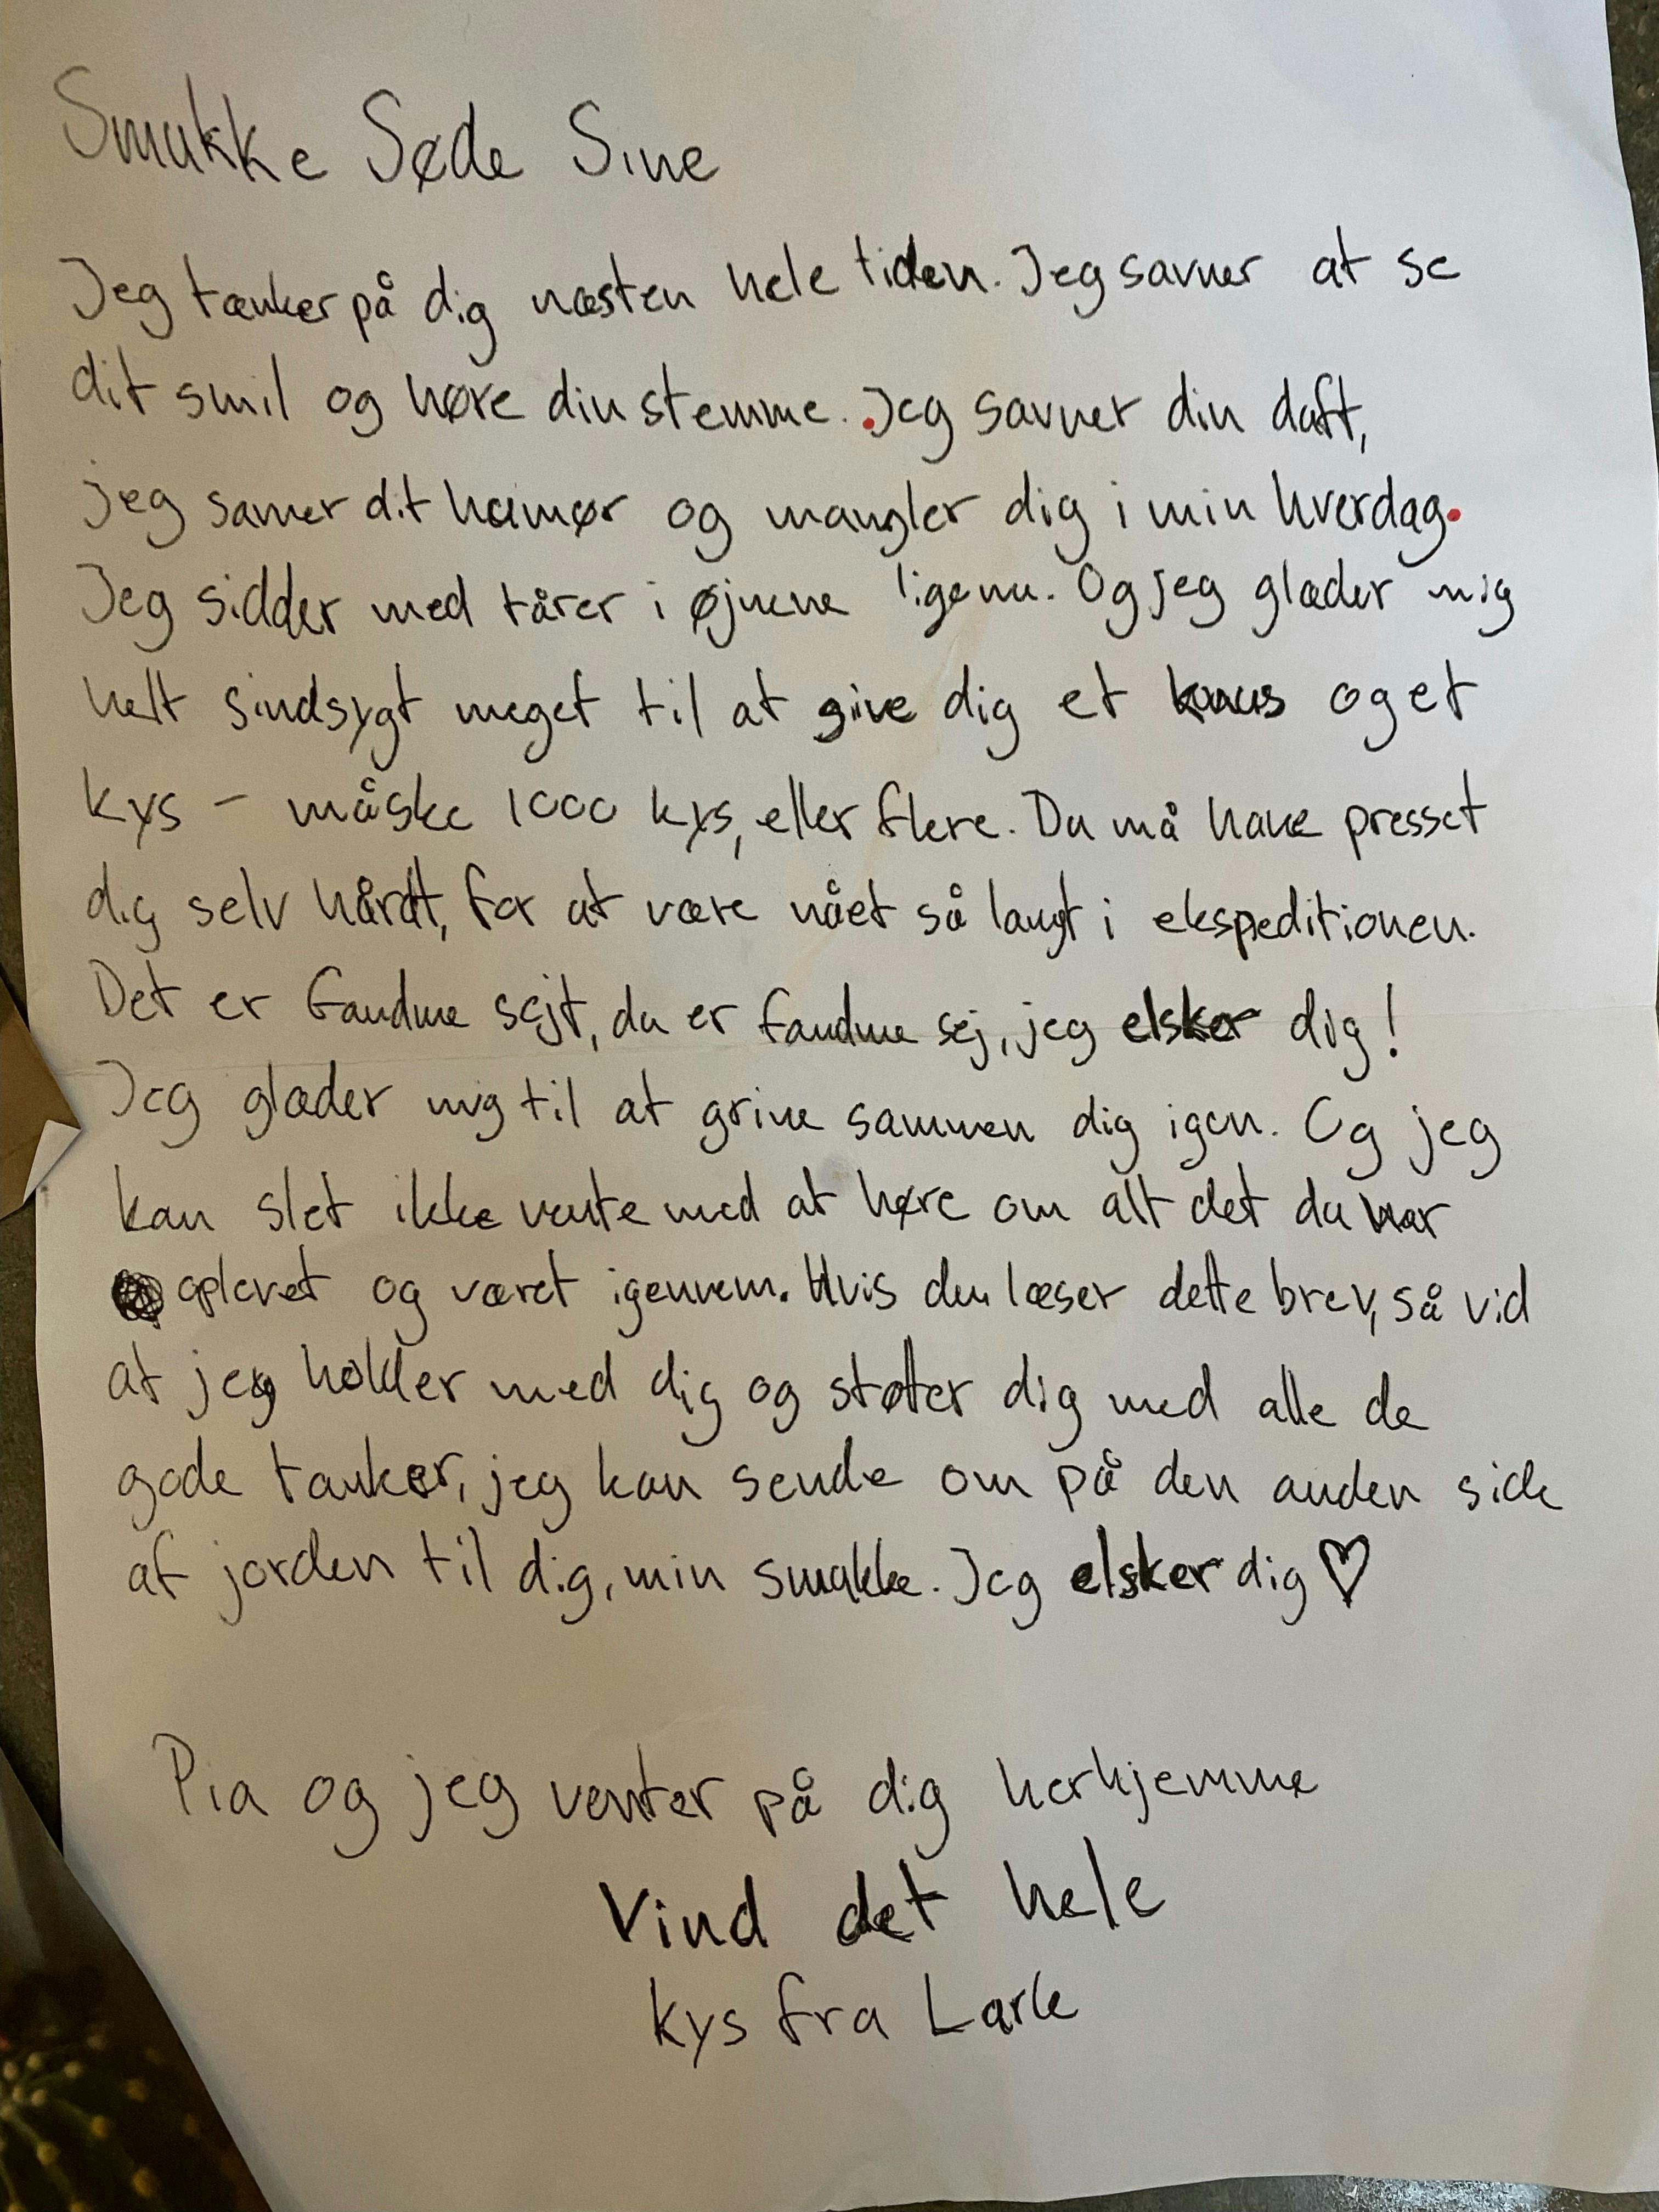 Smukke Søde Sine
Jeg tænker på dig næsten hele tiden. Jeg savner at se
dit smil og høre din stemme. Jeg savner din duft,
jeg savner dit humør og mangler dig i min hverdag.
Jeg sidder med tårer i øjnene lige nu. Og jeg glæder mig
helt sindsygt meget til at give dig et knus og et
kys - måske 1000 kys, eller flere. Du må have presset
dig selv hårdt, for at være nået så langt i ekspeditionen.
Det er fandme sejt, du er fandme sej, jeg elsker dig!
Jeg glæder mig til at grine sammen dig igen. Og jeg
kan slet ikke vente med at høre om alt det du har
oplevet og været igennem. Hvis du læser dette brev, så vid
at jeg holder med dig og støtter dig med alle de
gode tanker, jeg kan sende om på den anden side
af jorden til dig, min smukke. Jeg elsker dig ♡
Pia og jeg venter på dig herhjemme
Vind det hele
kys fra